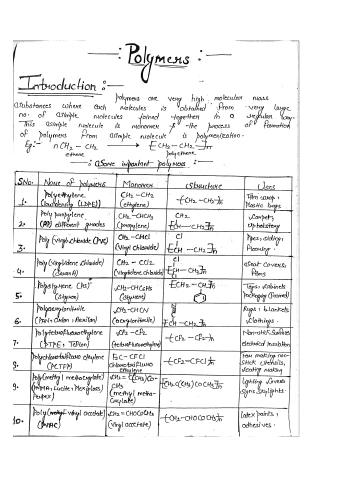 Polymers :-
Introduction :-
Polymers are very high molecular mass
substances where each molecules is obtained from very large
no. of simple molecules joined together in a regular way.
This simple molecule is monomer & the process of formation
of polymers from simple molecule is polymerization.
Eg:- nCH2-CH2 → [CH2-CH2]n
ethene polyethene
: Some important polymers :-
S.No. Name of polymers Monomer Structure Uses
1. Polyethylene CH2-CH2 (ethylene) [CH2-CH2]n Film wrap, Plastic bags
2. Poly propylene (PP) different grades CH2-CHCH3 (propylene) Carpet, Upholstery
3. Poly(vinyl chloride) (PVC) CH2-CHCl (vinyl chloride) Pipes, siding, Flooring
4. Poly(vinylidene chloride) (Saran A) CH2-CCl2 (vinylidene chloride) Seat covers, Films
5. Polystyrene (PS) (Styron) CH2-CHC6H5 (styrene) Toys, cabinets Packaging (foamed)
6. Polyacrylonitrile CH2-CHCN (acrylonitrile) Rugs, blankets, Clothings
7. Polytetrafluoroethylene (PTFE, Teflon) CF2-CF2 [CF2-CF2]n Non-stick surfaces electrical insulation
8. Polychlorotrifluoro ethylene (PCTFE) F2C-CFCl ethylene [CF2-CFCl]n non-stick utensils,
9. Poly(methyl methacrylate) (methyl methacrylate) Lighting covers signs, skylights
10. (PVAC) CH2-CHOCOCH3 (vinyl acetate) [CH2-CHOCOCH3]n Latex paints, adhesives.